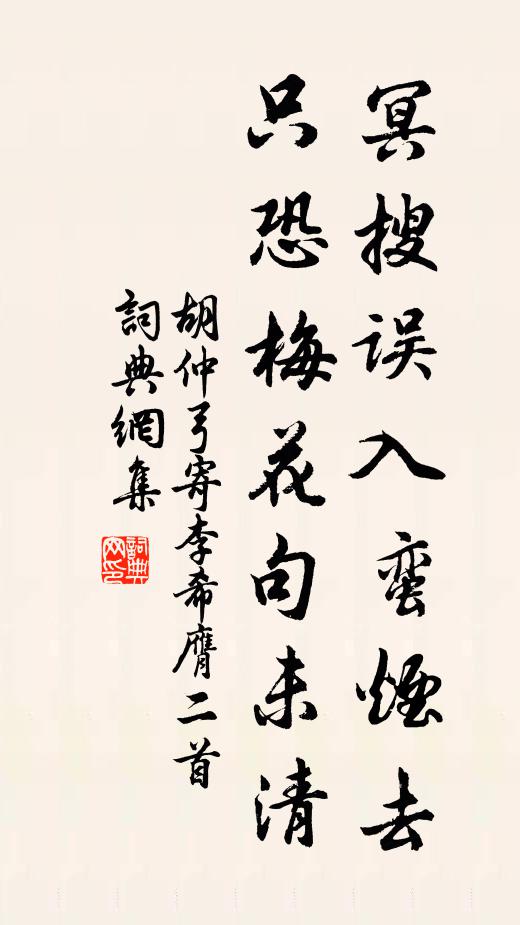 冥搜误入蛮煙去
只恐梅花句未清
胡仲弓寄李希膺二首
詞典網集
詞典网印